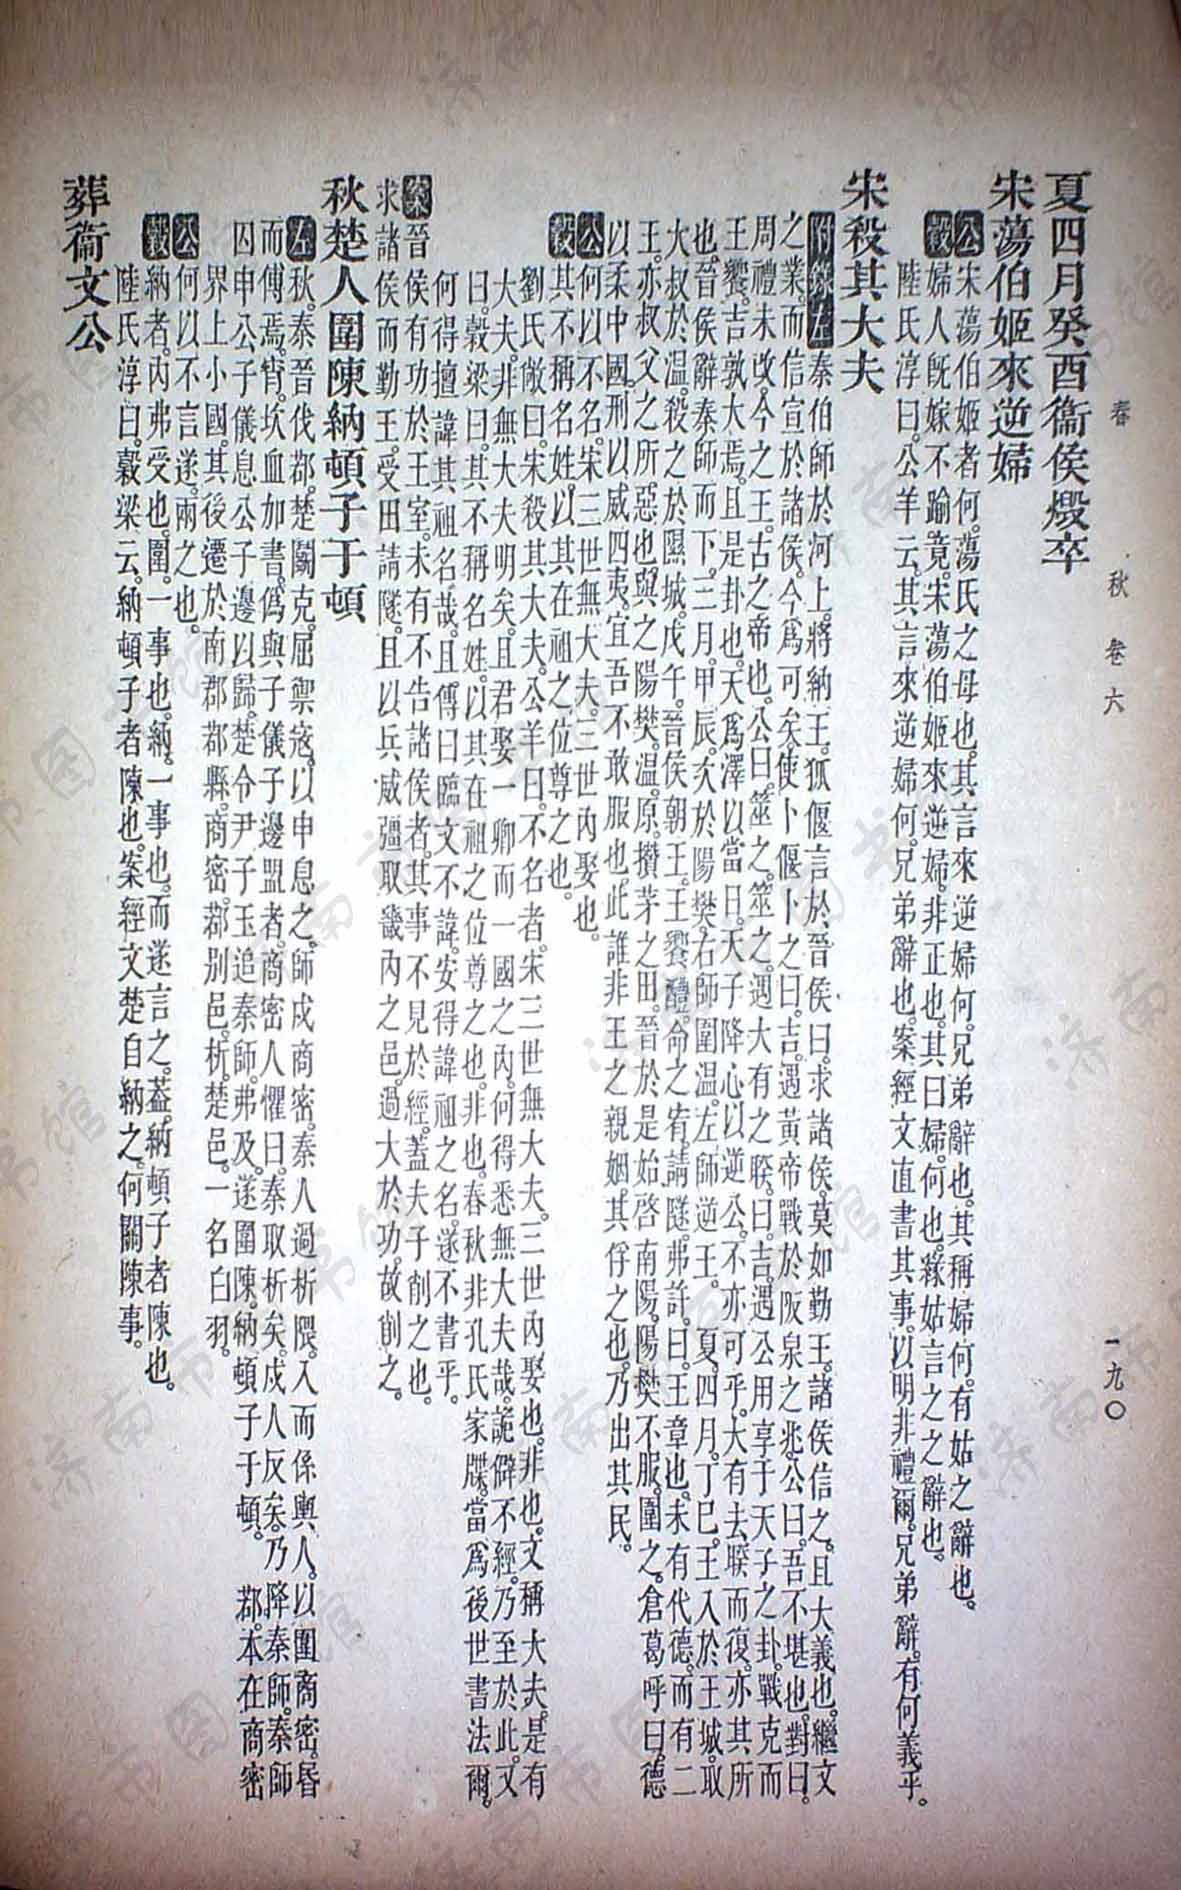 春秋 卷六 一九〇
夏四月癸酉衞侯燬卒
宋蕩伯姬來逆婦
公宋蕩伯姬者何。蕩氏之母也。其言來逆婦何。兄弟辭也。其稱婦何。有姑之辭也。
穀婦人旣嫁不踰竟。宋蕩伯姬來逆婦。非正也。其曰婦。何也。緣姑言之之辭也。
陸氏淳曰。公羊云。其言來逆婦何。兄弟辭也。案經文直書其事。以明非禮爾。兄弟辭。有何義乎。
宋殺其大夫
附錄左秦伯師於河上。將納王。狐偃言於晉侯曰。求諸侯。莫如勤王。諸侯信之。且大義也。繼文
之業。而信宣於諸侯。今爲可矣。使卜偃卜之。曰。吉。遇黃帝戰於阪泉之兆。公曰。吾不堪也。對曰。
周禮未改。今之王。古之帝也。公曰。筮之。筮之。遇大有之睽。曰。吉。遇公用享于天子之卦。戰克而
王饗。吉孰大焉。且是卦也。天爲澤以當日。天子降心以逆公。不亦可乎。大有去睽而復。亦其所
也。晉侯辭秦師而下。三月。甲辰。次於陽樊。右師圍溫。左師逆王。夏。四月。丁巳。王入於王城。取
大叔於溫。殺之於隰城。戊午。晉侯朝王。王饗醴。命之宥。請隧。弗許。曰。王章也。未有代德。而有二
王。亦叔父之所惡也。與之陽樊。溫。原。攢茅之田。晉於是始啓南陽。陽樊不服。圍之。倉葛呼曰。德
以柔中國。刑以威四夷。宜吾不敢服也。此誰非王之親姻。其俘之也。乃出其民。
公何以不名。宋三世無大夫。三世內娶也。
穀其不稱名姓。以其在祖之位尊之也。
劉氏敞曰。宋殺其大夫。公羊曰。不名者。宋三世無大夫。三世內娶也。非也。文稱大夫。是有
大夫。非無大夫明矣。且君娶一卿。而一國之內。何得悉無大夫哉。詭僻不經。乃至於此。又
曰。穀梁曰。其不稱名姓。以其在祖之位尊之也。非也。春秋非孔氏家牒。當爲後世書法爾。
何得擅諱其祖名哉。且傳曰臨文不諱。安得諱祖之名。遂不書乎。
案晉侯有功於王室。未有不告諸侯者。其事不見於經。蓋夫子削之也。
求諸侯而勤王。受田請隧。且以兵威彊取畿內之邑。過大於功。故削之。
秋楚人圍陳納頓子于頓
左秋。秦晉伐鄀。楚鬭克。屈禦寇。以申息之。師戍商密。秦人過析隈。入而係輿人。以圍商密。昏
而傅焉。宵。坎血加書。僞與子儀子邊盟者。商密人懼曰。秦取析矣。戍人反矣。乃降秦師。秦師
囚申公子儀息公子邊以歸。楚令尹子玉追秦師。弗及。遂圍陳。納頓子于頓。 鄀。本在商密
界上小國。其後遷於南郡鄀縣。商密。鄀別邑。析。楚邑。一名白羽。
公何以不言遂。兩之也。
穀納者。內弗受也。圍。一事也。納。一事也。而遂言之。蓋納頓子者陳也。
陸氏淳曰。穀梁云。納頓子者陳也。案經文。楚自納之。何關陳事。
葬衞文公